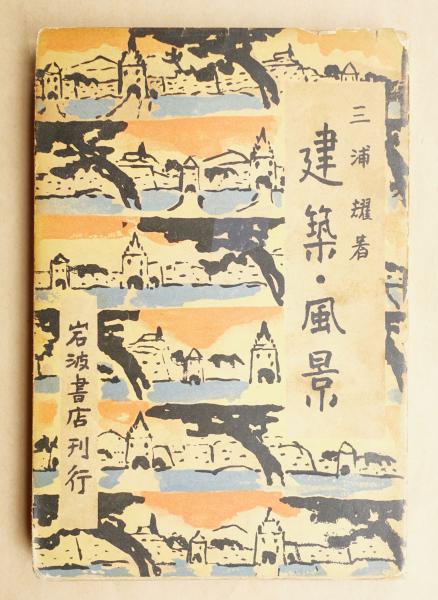 三浦耀著
建築・風景
岩波書店刊行